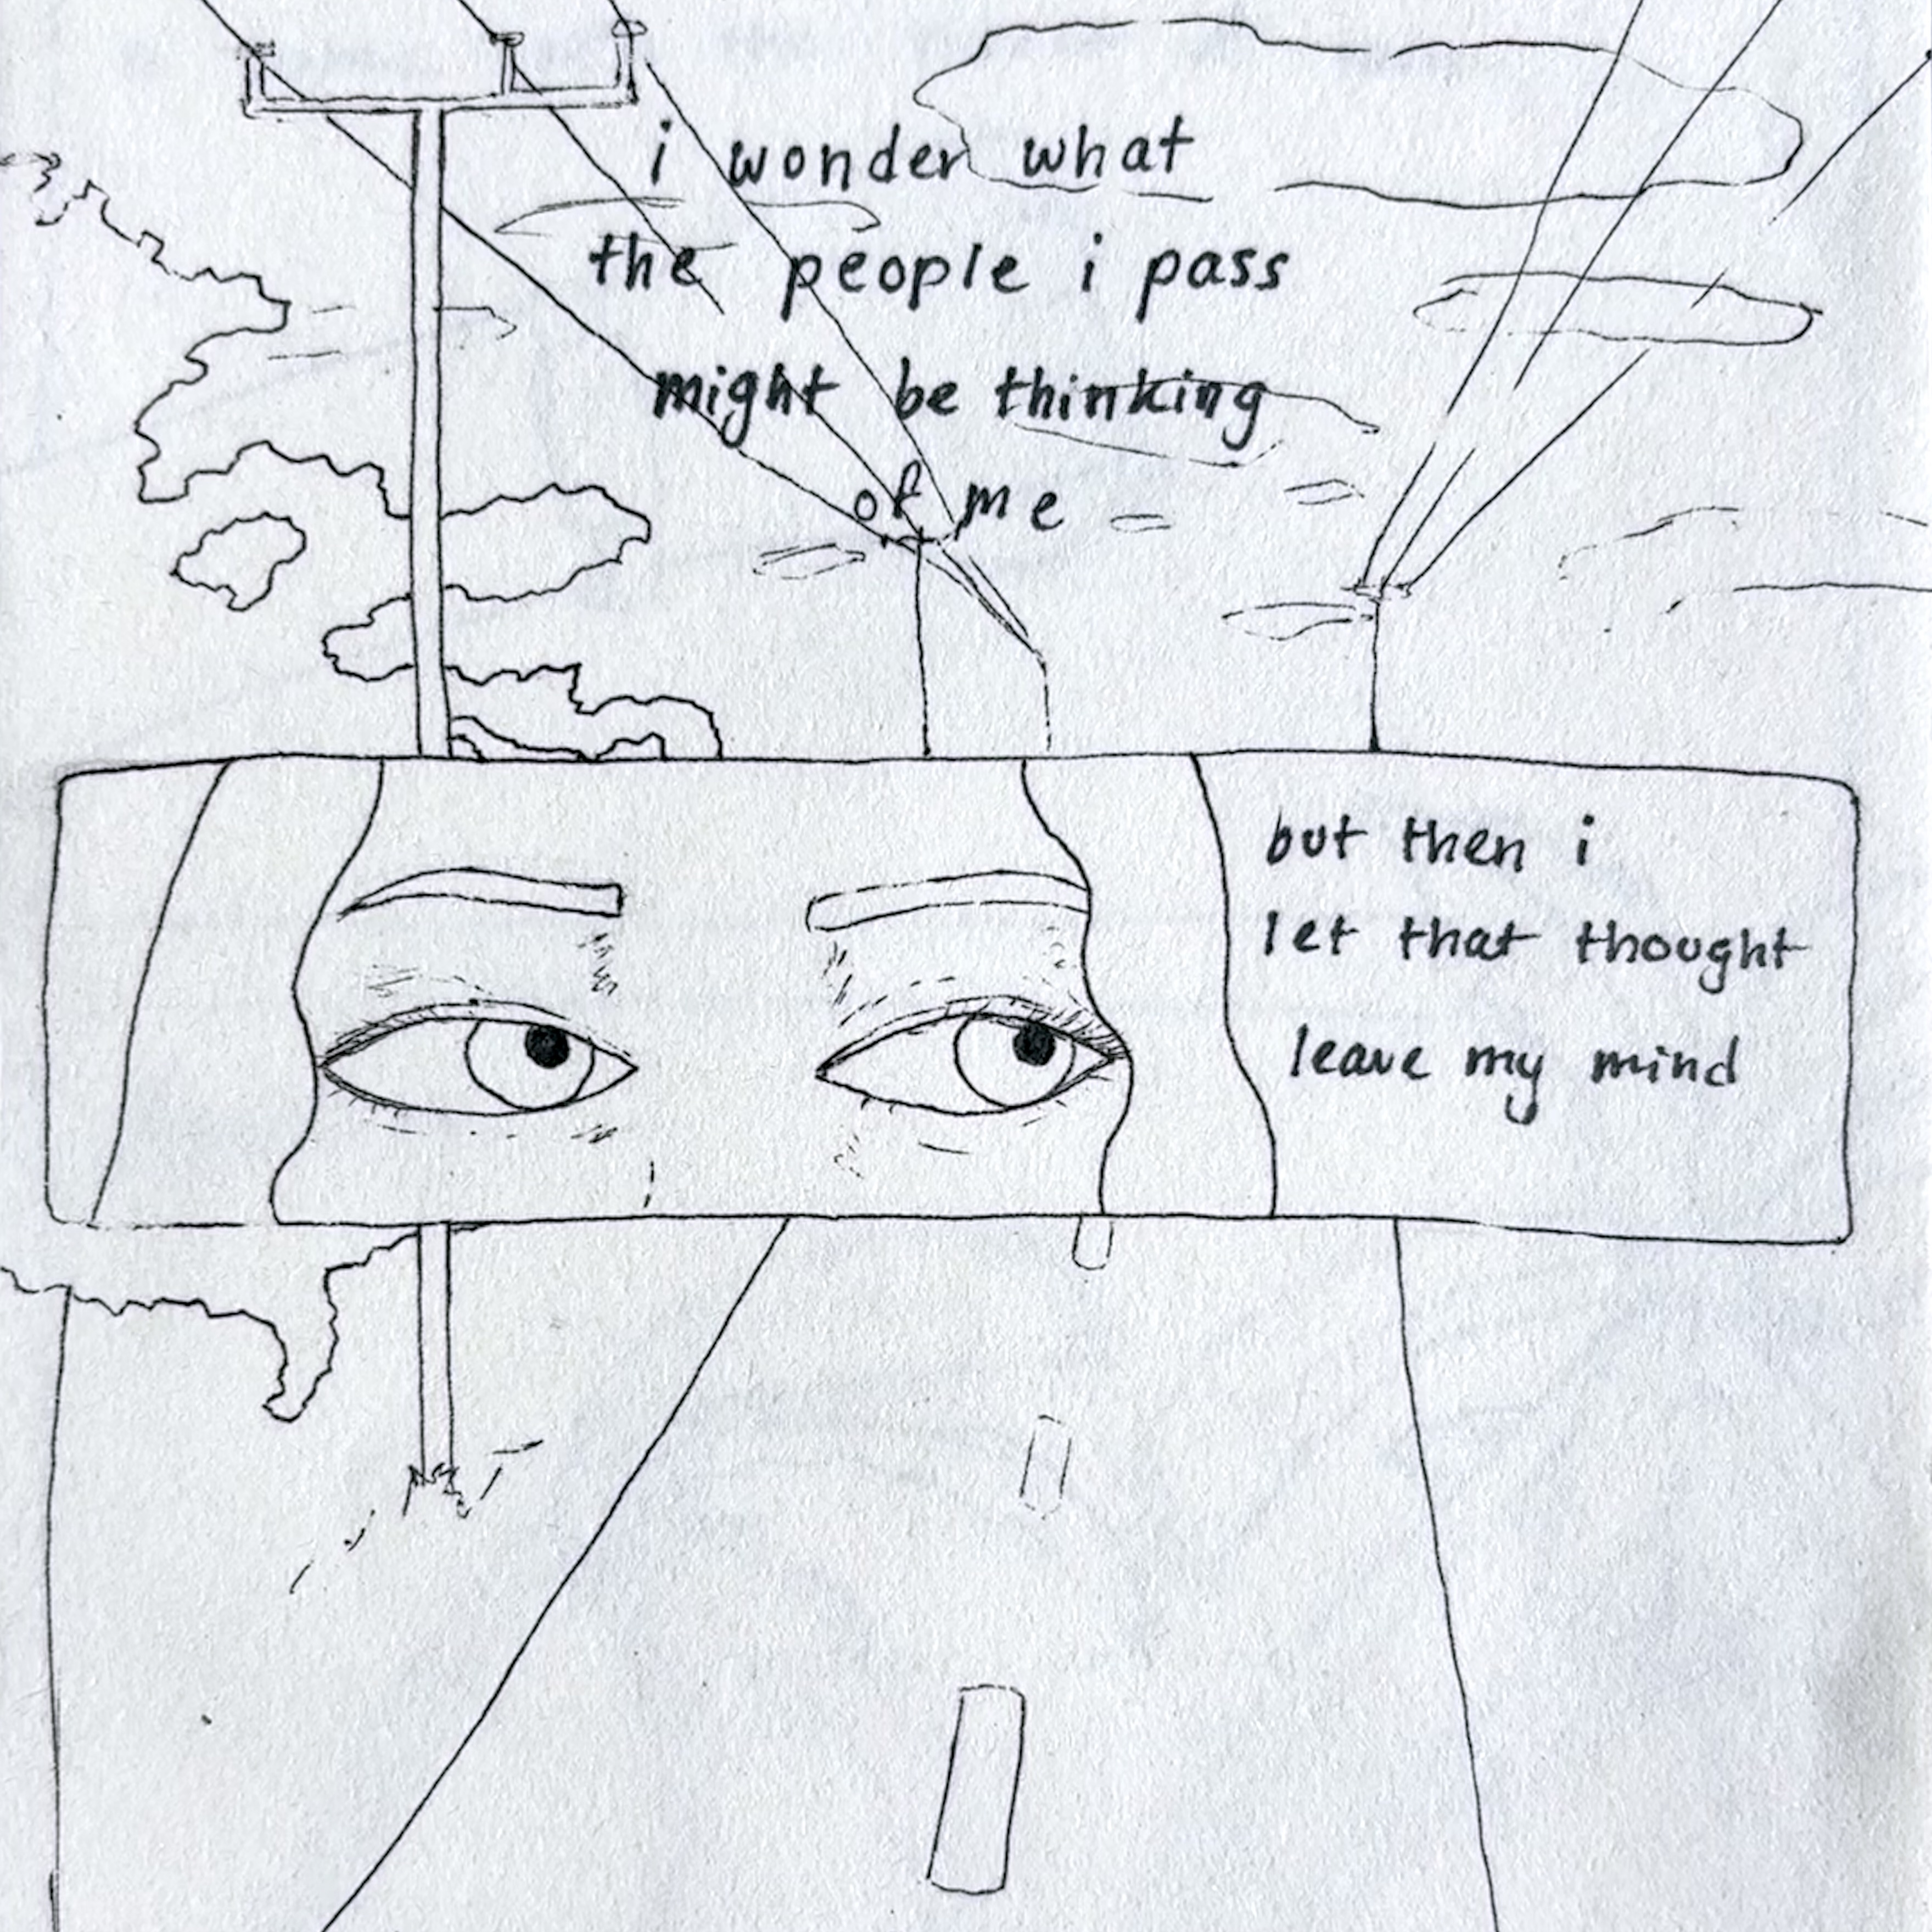 i wonder what
the people i pass
might be thinking
of me
but then i
let that thought
leave my mind